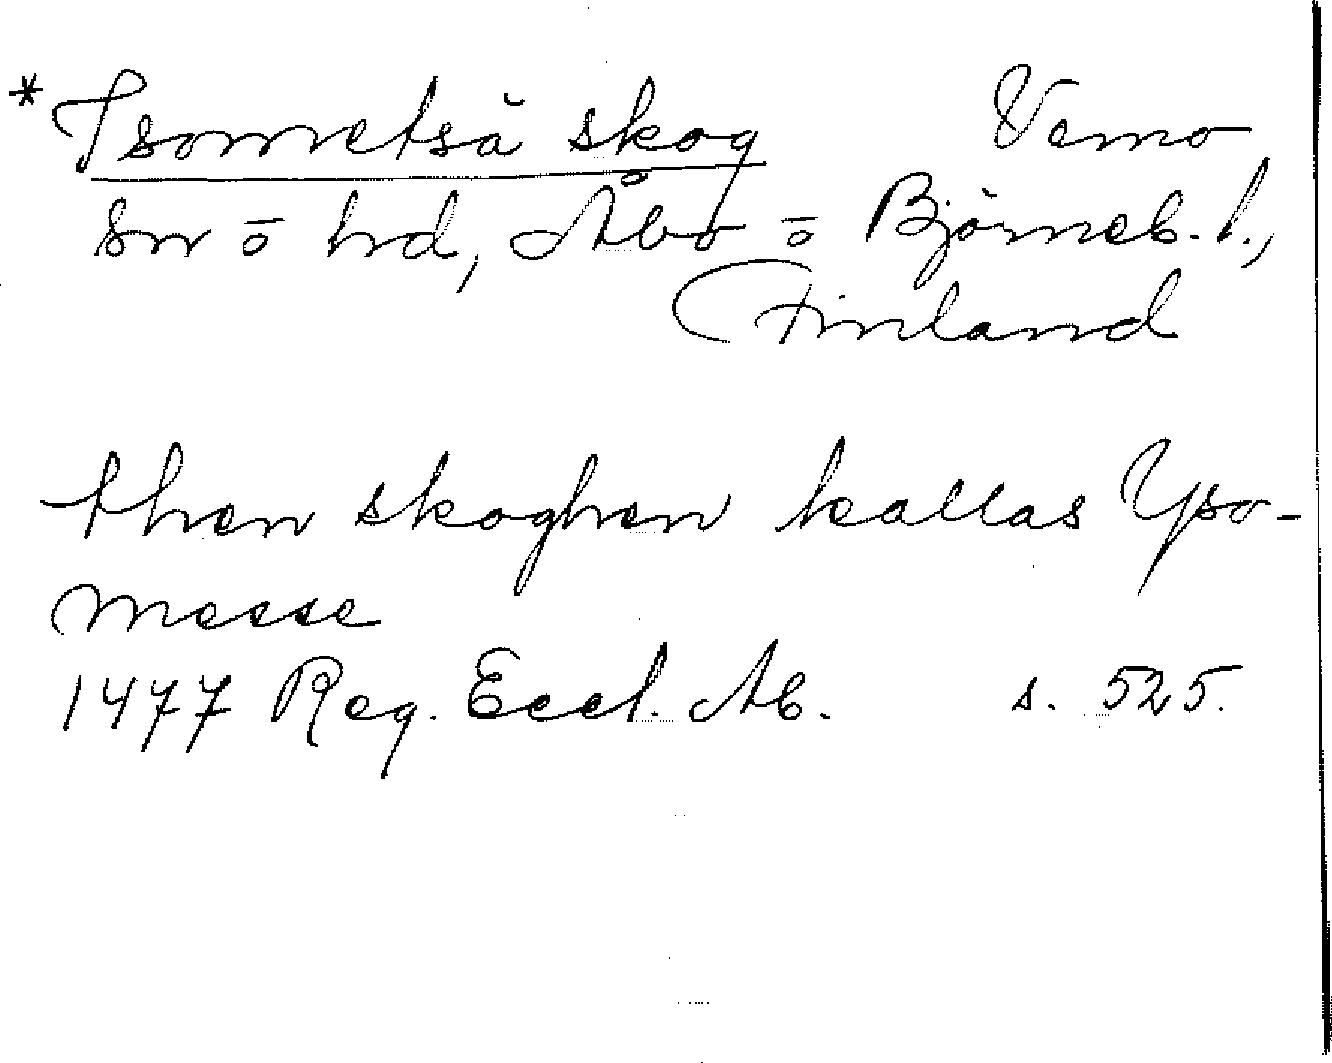 * Isometsä skog Vemo
sn ō hd, Åbo ō Björneb. l.,
Finland
then skoghen kallas Yso-
messe
1477 Reg. Eccl. Ab. s. 525.